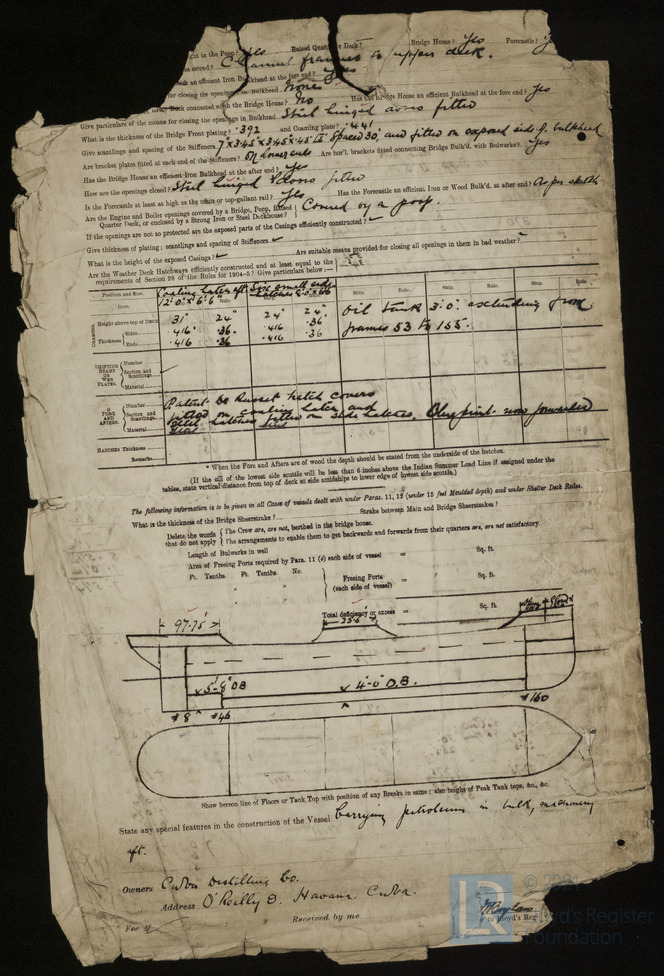 ght in the Poop? Yes Raised Quarter Deck? Bridge House? Yes Forecastle?
Channel frames to upper deck.
an efficient Iron Bulkhead at the fore end? Yes
closing the openings in bulkhead None
Deck connected with the Bridge House? No Has the Bridge House an efficient Bulkhead at the fore end? Yes
Give particulars of the means for closing the openings in Bulkhead Steel hinged doors fitted
What is the thickness of the Bridge Front plating? .392 and Coaming plate? .441
Give scantlings and spacing of the Stiffeners 7 x 3.45 x 3.45 x .45 Spaced 30" and fitted on exposed side of bulkhead
Are bracket plates fitted at each end of the Stiffeners? On lower ends Are hor'l. brackets fitted connecting Bridge Bulk'd. with Bulwarks? Yes
Has the Bridge House an efficient Iron Bulkhead at the after end? Yes
How are the openings closed? Steel hinged doors fitted
Is the Forecastle at least as high as the main or top-gallant rail? Yes Has the Forecastle an efficient Iron or Wood Bulk'd. at after end? As per sketch
Are the Engine and Boiler openings covered by a Bridge, Poop, Raised Quarter Deck, or enclosed by a Strong Iron or Steel Deckhouse? Covered by a poop.
If the openings are not so protected are the exposed parts of the Casings efficiently constructed?
Give thickness of plating; scantlings and spacing of Stiffeners
What is the height of the exposed Casings? Are suitable means provided for closing all openings in them in bad weather?
Are the Weather Deck Hatchways efficiently constructed and at least equal to the
requirements of Section 28 of the Rules for 1904-5? Give particulars below:—
Position and Size. Coaling hatch aft 12'.0" x 6'.6" Six small
Item. Rule. Ship. Rule. Ship. Rule.
COAMING. Height above top of Deck 31" 24" 24" 24" Oil tank 3'.0" extending from
Thickness Sides .416" .36 .416 .36 frames 53 to 155.
Ends .416 .36 .416 .36
SHIFTING BEAMS OR WEB PLATES. Number
Section and Scantlings
Material
FORE AND AFTERS. Number Patent De Russet hatch covers
Section and Scantlings fitted on coaling hatch and
Material Blueprint now forwarded
HATCHES Thickness
Remarks
* When the Fore and Afters are of wood the depth should be stated from the underside of the hatches.
(If the sill of the lowest side scuttle will be less than 6 inches above the Indian Summer Load Line if assigned under the
tables, state vertical distance from top of deck at side amidships to lower edge of lowest side scuttle.)
The following information is to be given in all Cases of vessels dealt with under Paras. 11, 12 (under 15 feet Moulded depth) and under Shelter Deck Rules.
What is the thickness of the Bridge Sheerstrake? Strake between Main and Bridge Sheerstrakes?
Delete the words that do not apply { The Crew are, are not, berthed in the bridge house.
The arrangements to enable them to get backwards and forwards from their quarters are, are not satisfactory
Length of Bulwarks in well = Sq. ft.
Area of Freeing Ports required by Para. 11 (e) each side of vessel =
Ft. Tenths. Ft. Tenths. No.
x x } Freeing Ports (each side of vessel) = Sq. ft.
Total deficiency or excess = Sq. ft.
97.75' 25.6'
5'-8" DB 4'-0" D.B.
#8 #46 #160
Show hereon line of Floors or Tank Top with position of any Breaks in same: also height of Peak Tank tops, &c., &c.
State any special features in the construction of the Vessel Carrying petroleum in bulk, machinery
aft.
Owners Cuba Distilling Co.
Address O'Reilly 9. Havana. Cuba.
Fee Received by me
to Lloyd's Reg
LR © 2021
Lloyd's Register
Foundation